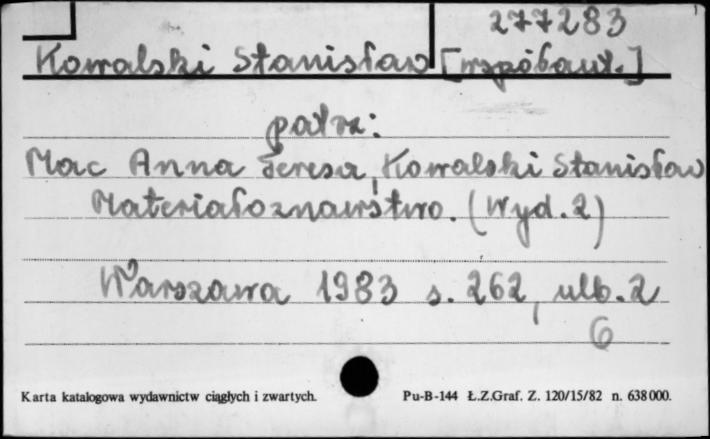 277283
Kowalski Stanisław [współaut.]
patrz:
Mac Anna Teresa, Kowalski Stanisław
Materiałoznawstwo. (Wyd. 2)
Warszawa 1983 s. 262, ulb. 2
6
Karta katalogowa wydawnictw ciągłych i zwartych. Pu-B-144 Ł.Z.Graf. Z. 120/15/82 n. 638000.